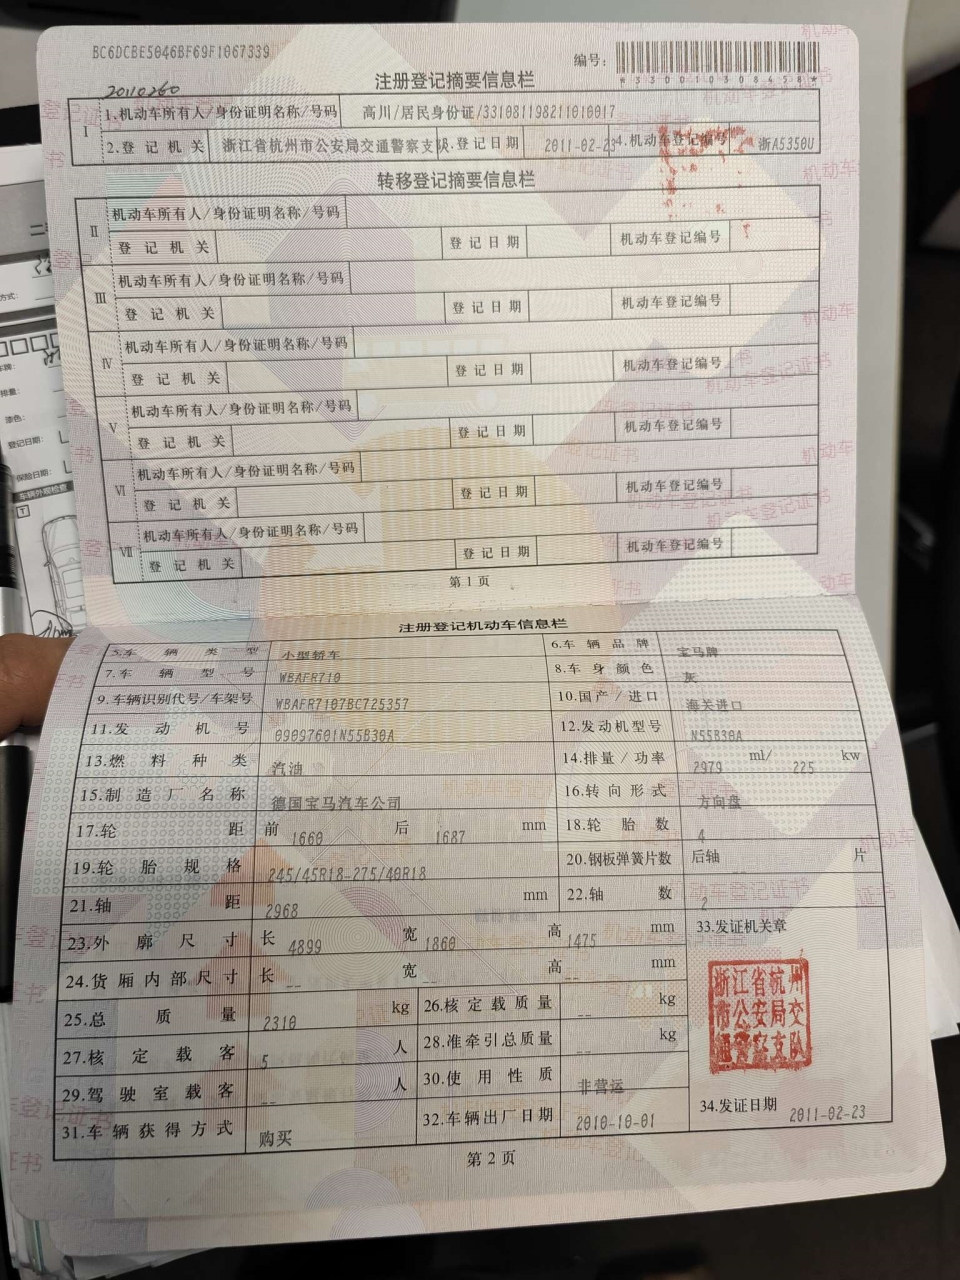 BC6DCBE5046BF69F1067339
编号：
*330010308458*
注册登记摘要信息栏
20110260
I
1.机动车所有人/身份证明名称/号码 高川/居民身份证/331081198211010017
2.登记机关 浙江省杭州市公安局交通警察支队 3.登记日期 2011-02-23 4.机动车登记编号 浙A5350U
转移登记摘要信息栏
II 机动车所有人/身份证明名称/号码
登记机关 登记日期 机动车登记编号
III 机动车所有人/身份证明名称/号码
登记机关 登记日期 机动车登记编号
IV 机动车所有人/身份证明名称/号码
登记机关 登记日期 机动车登记编号
V 机动车所有人/身份证明名称/号码
登记机关 登记日期 机动车登记编号
VI 机动车所有人/身份证明名称/号码
登记机关 登记日期 机动车登记编号
VII 机动车所有人/身份证明名称/号码
登记机关 登记日期 机动车登记编号
第1页
注册登记机动车信息栏
5.车辆类型 小型轿车 6.车辆品牌 宝马牌
7.车辆型号 WBAFR710 8.车身颜色 灰
9.车辆识别代号/车架号 WBAFR7107BC725357 10.国产/进口 海关进口
11.发动机号 09097601N55B30A 12.发动机型号 N55B30A
13.燃料种类 汽油 14.排量/功率 2979 ml/ 225 kw
15.制造厂名称 德国宝马汽车公司 16.转向形式 方向盘
17.轮距 前 1660 后 1687 mm 18.轮胎数 4
19.轮胎规格 245/45R18-275/40R18 20.钢板弹簧片数 后轴 片
21.轴距 2968 mm 22.轴数 2
23.外廓尺寸 长 4899 宽 1860 高 1475 mm 33.发证机关章
24.货厢内部尺寸 长 -- 宽 -- 高 -- mm
浙江省杭州
市公安局交
通警察支队
25.总质量 2310 kg 26.核定载质量 -- kg
27.核定载客 5 人 28.准牵引总质量 -- kg
29.驾驶室载客 -- 人 30.使用性质 非营运
31.车辆获得方式 购买 32.车辆出厂日期 2010-10-01 34.发证日期 2011-02-23
第2页
方式：
排量：
漆色：
登记日期：
保险日期：
车辆外观检查
T